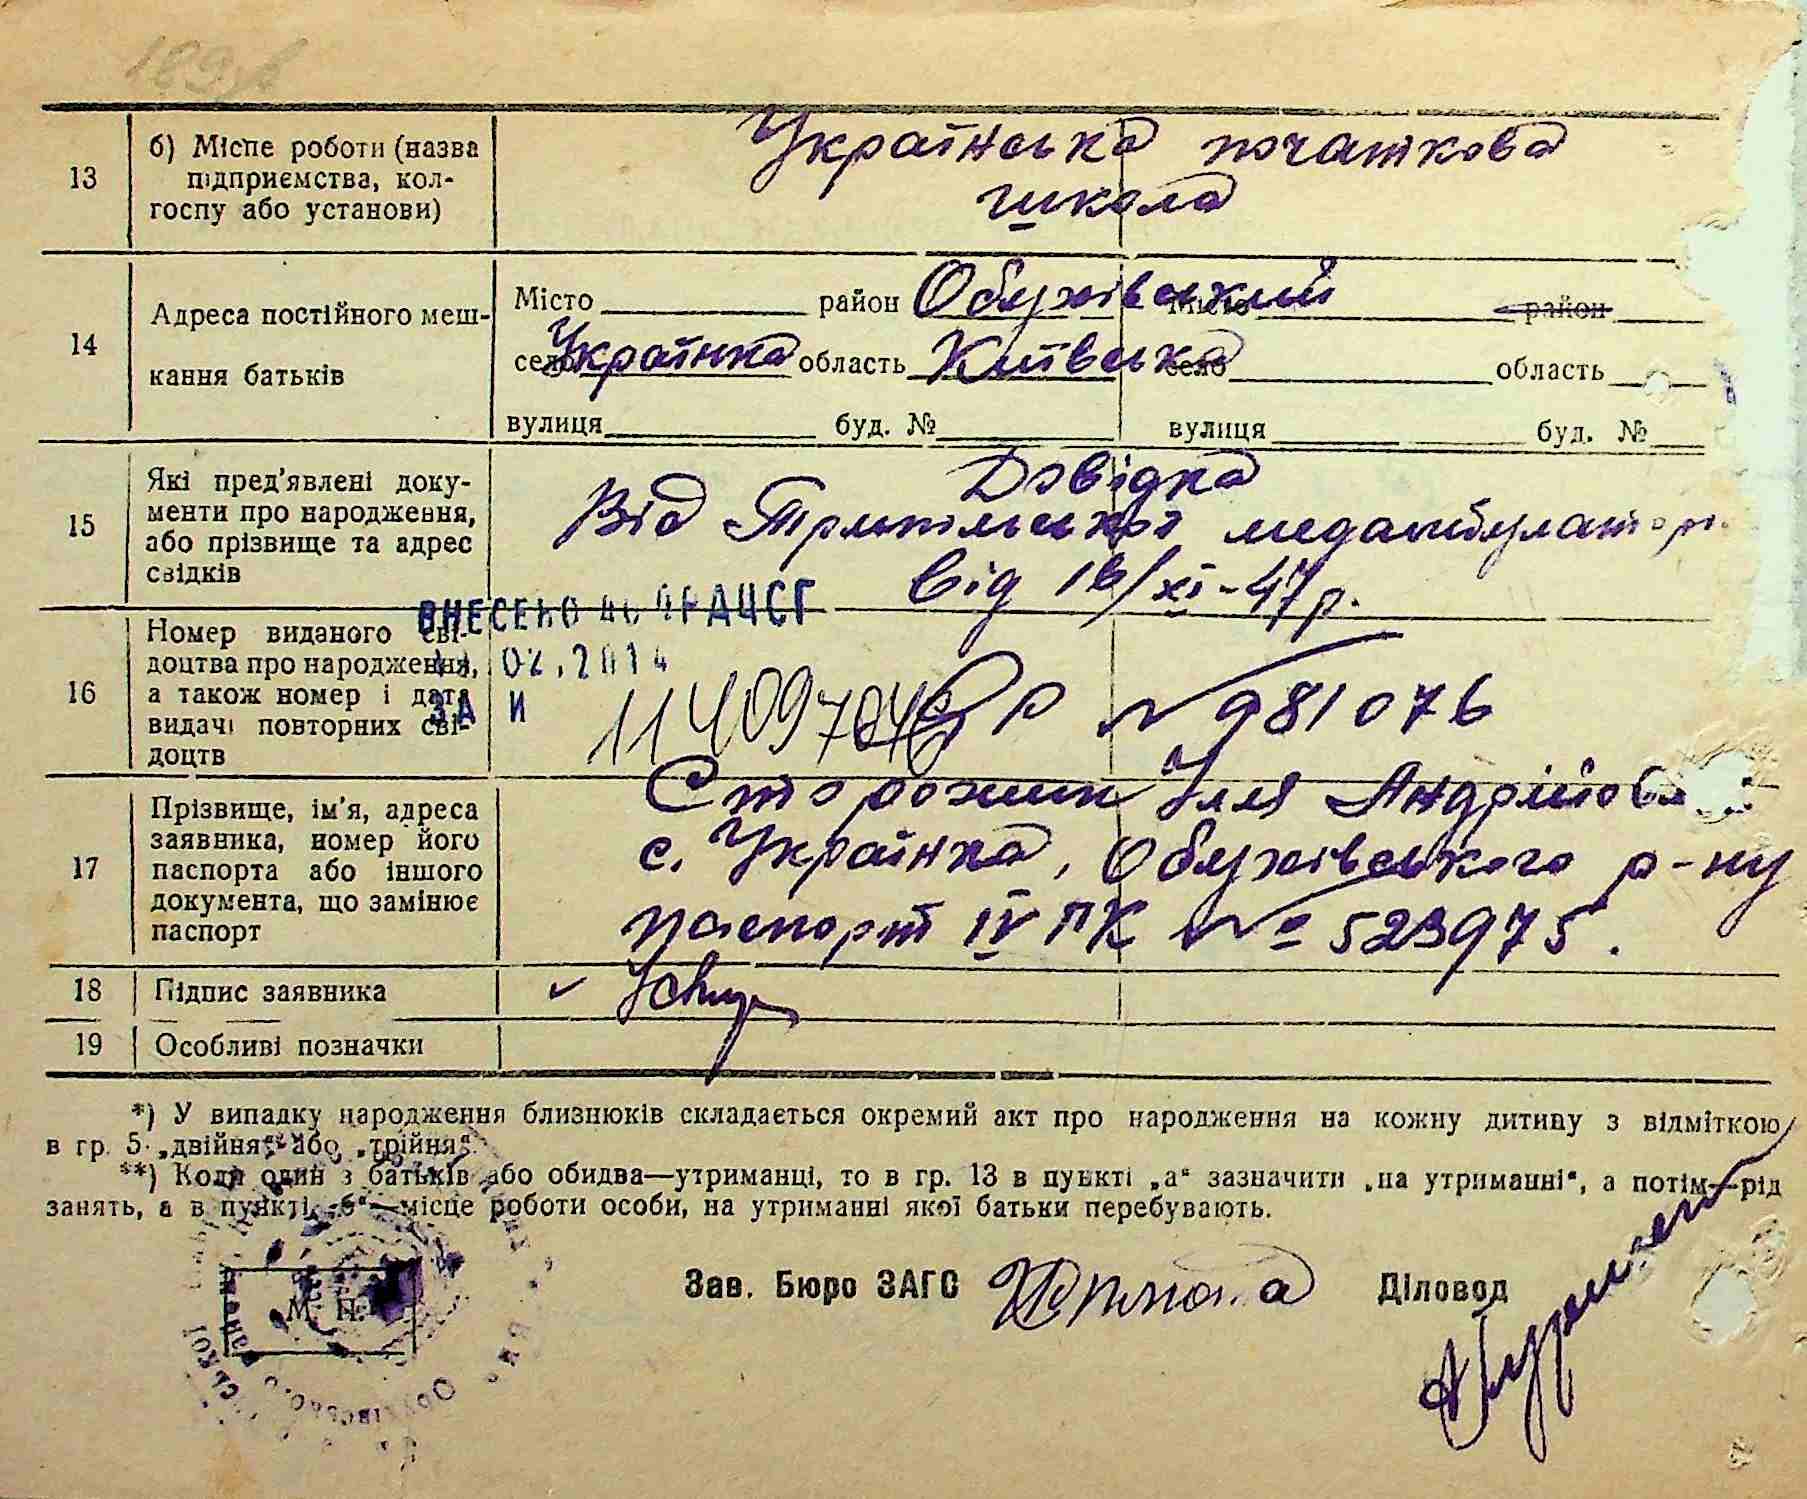 13 б) Місце роботи (назва
підприємства, кол-
госпу або установи)
Українська початкова
школа
14 Адреса постійного меш-
кання батьків
Місто район Обухівський Місто район
село Українка область Київська село область
вулиця буд. № вулиця буд. №
15 Які пред'явлені доку-
менти про народження,
або прізвище та адрес
свідків
Довідка
Від Трипільської медамбулатор.
від 16/XI-47р.
ВНЕСЕНО ДО ДРАЦСГ
02.2014
ЗА N
16 Номер виданого сві-
доцтва про народження,
а також номер і дата
видачі повторних сві-
доцтв
№ 981076
17 Прізвище, ім'я, адреса
заявника, номер його
паспорта або іншого
документа, що замінює
паспорт
Сторожик Ілля Андрійов
с. Українка, Обухівського р-ну
паспорт IV ПК № 523975.
18 Підпис заявника
19 Особливі позначки
*) У випадку народження близнюків складається окремий акт про народження на кожну дитину з відміткою
в гр. 5 „двійня“ або „трійня“.
**) Коли один з батьків або обидва—утриманці, то в гр. 13 в пункті „а“ зазначити „на утриманні“, а потім—рід
занять, а в пункті „б“—місце роботи особи, на утриманні якої батьки перебувають.
М. П.
Зав. Бюро ЗАГС Діловод